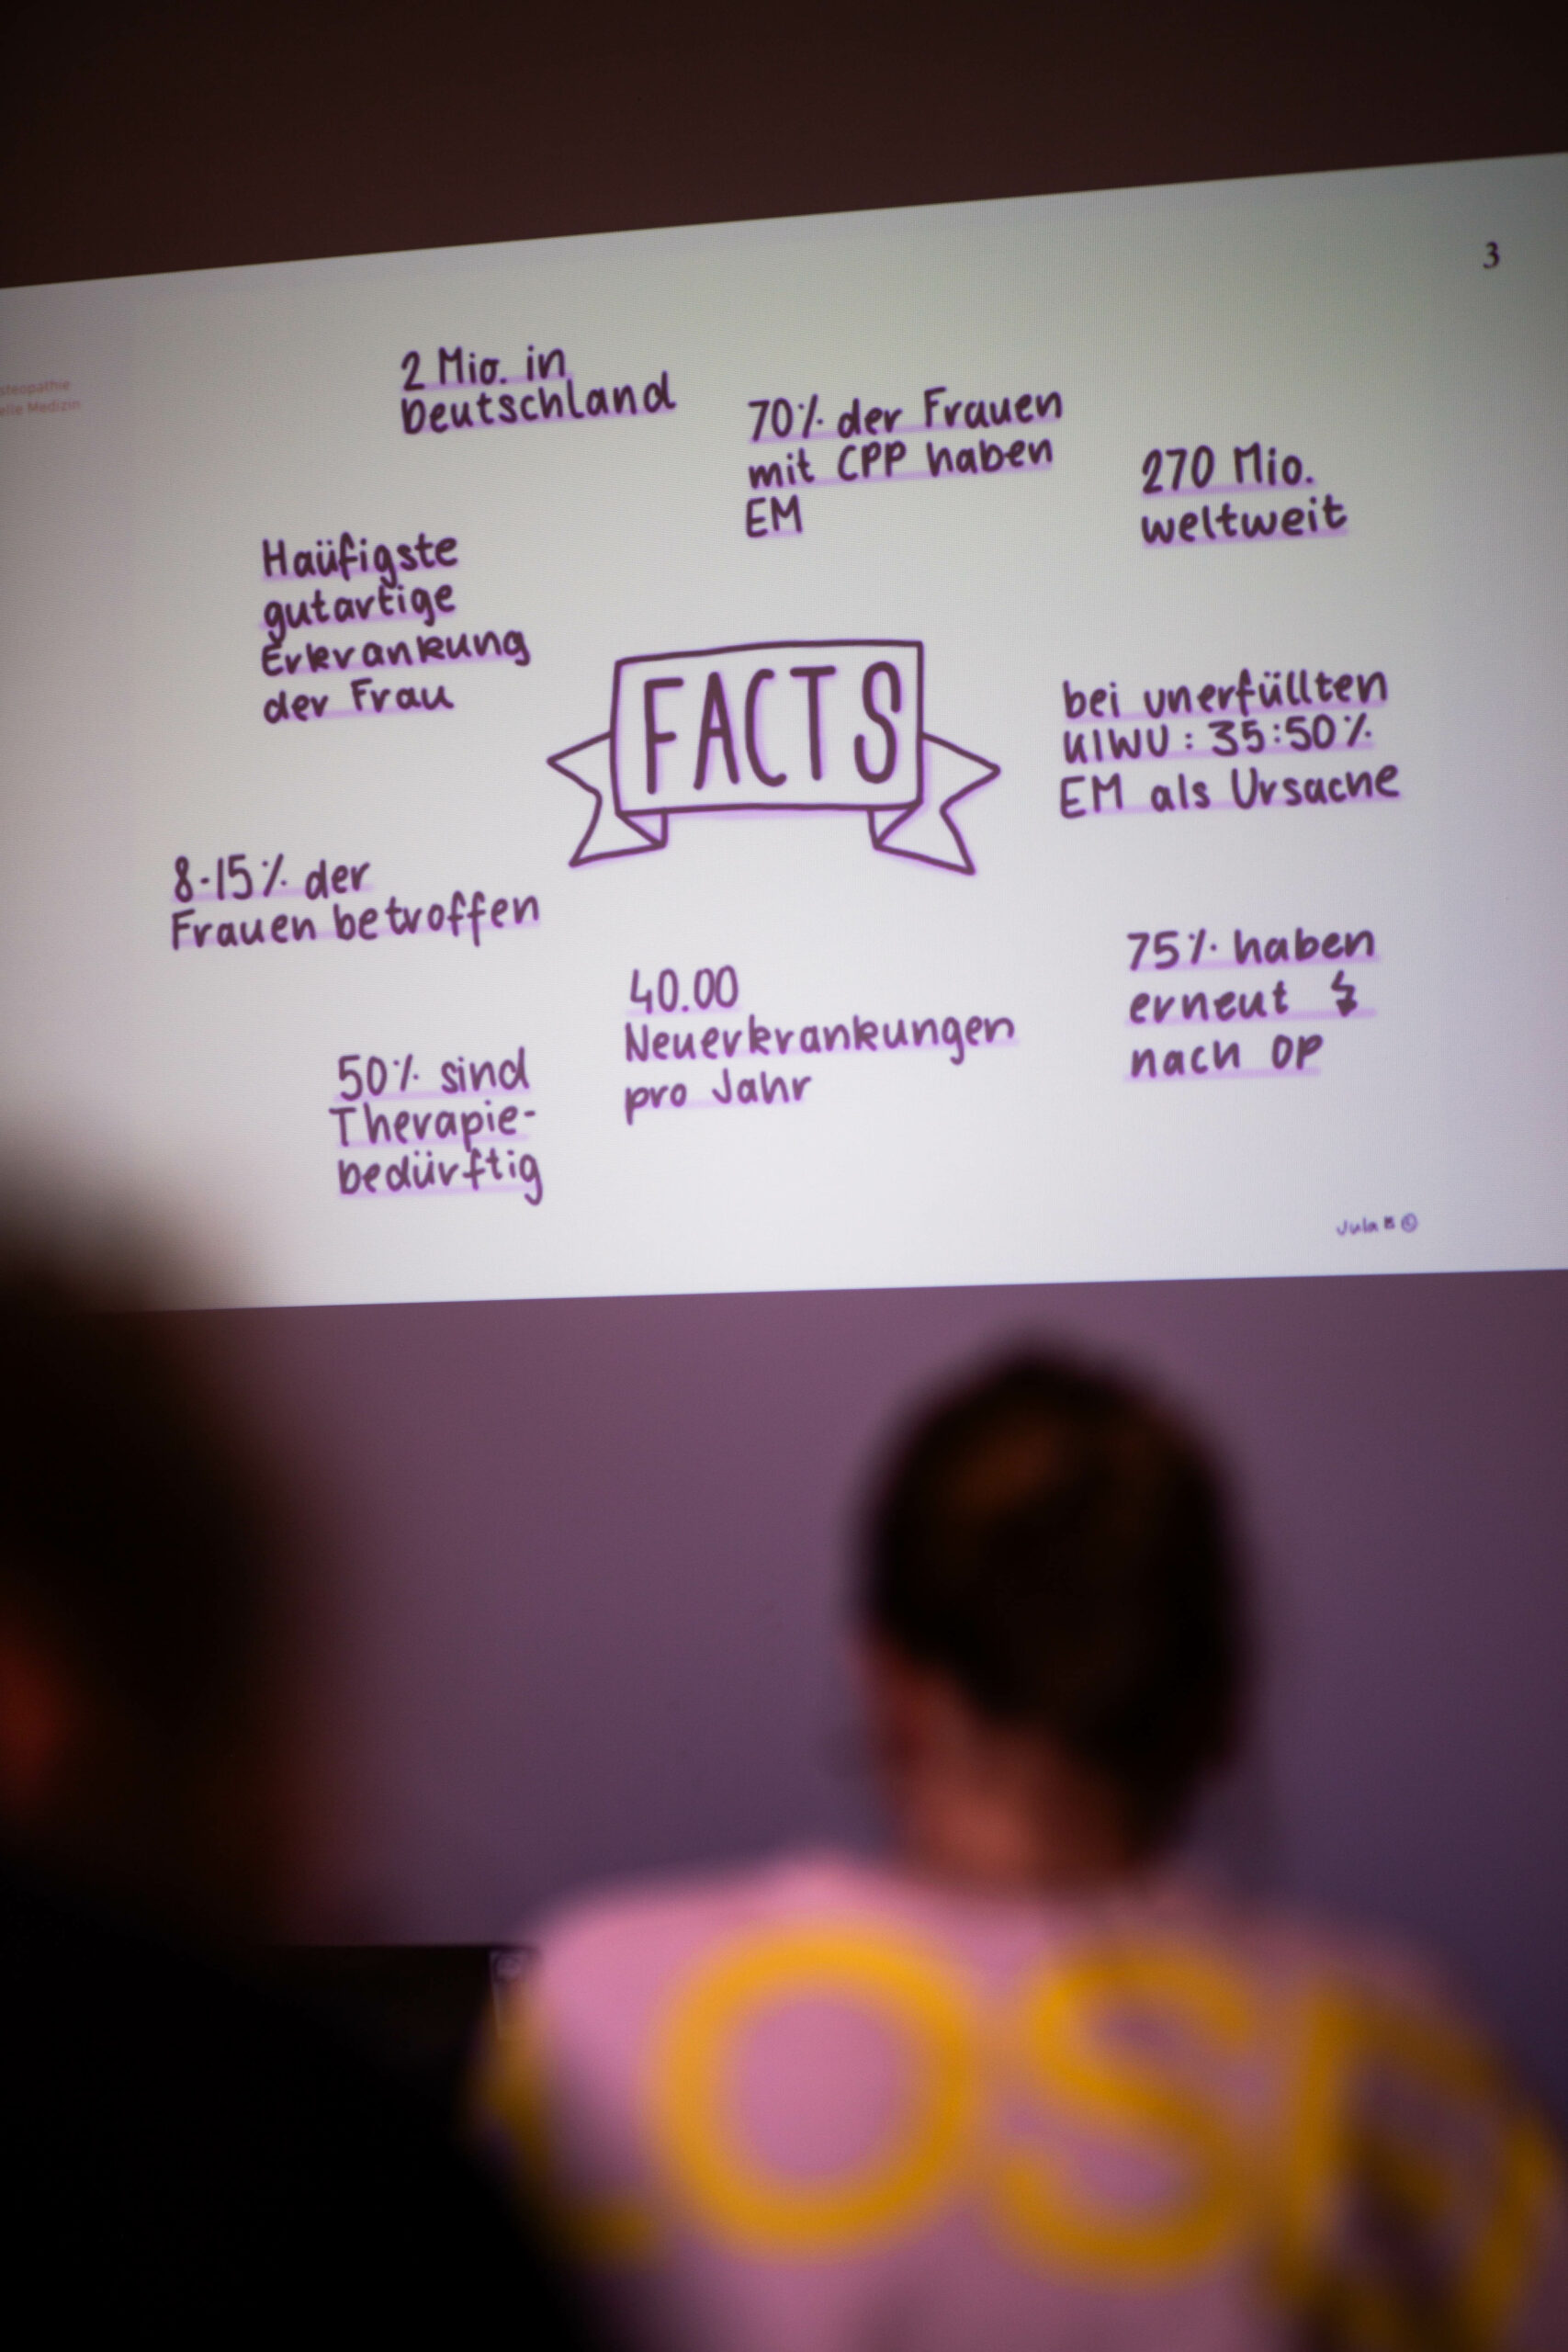 3
steopathie
elle Medizin
2 Mio. in
Deutschland
70% der Frauen
mit CPP haben
EM
270 Mio.
weltweit
Haüfigste
gutartige
Erkrankung
der Frau
FACTS
bei unerfüllten
KIWU: 35:50%
EM als Ursache
8-15% der
Frauen betroffen
40.00
Neuerkrankungen
pro Jahr
75% haben
erneut
nach OP
50% sind
Therapie-
bedürftig
Jula
OS